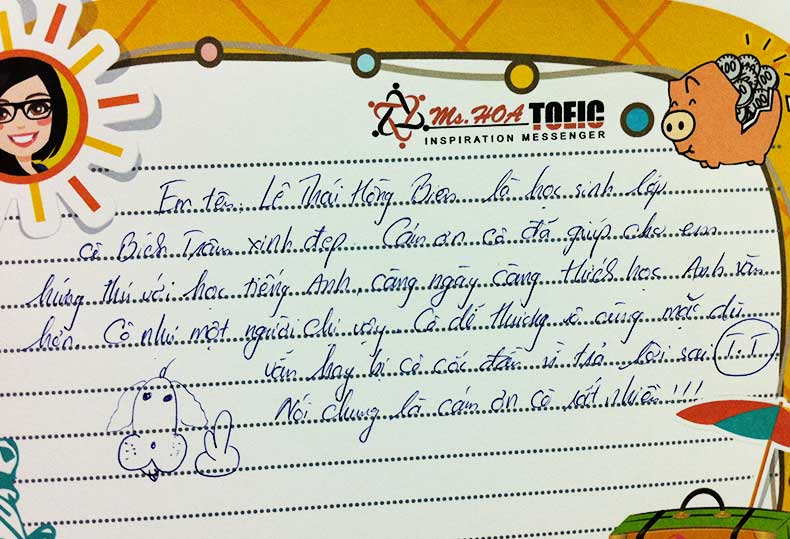 Ms. HOA TOEIC
INSPIRATION MESSENGER
100 100 100
Em tên: Lê Thái Hồng Bien là học sinh lớp
cô Bích Trâm xinh đẹp. Cám ơn cô đã giúp cho em
hứng thú với học tiếng Anh, càng ngày càng thích học Anh văn
hơn. Cô như một người chị vậy. Cô dễ thương vô cùng mặc dù
vẫn hay bị cô cốc đầu vì trả lời sai T.T
Nói chung là cám ơn cô rất nhiều!!!